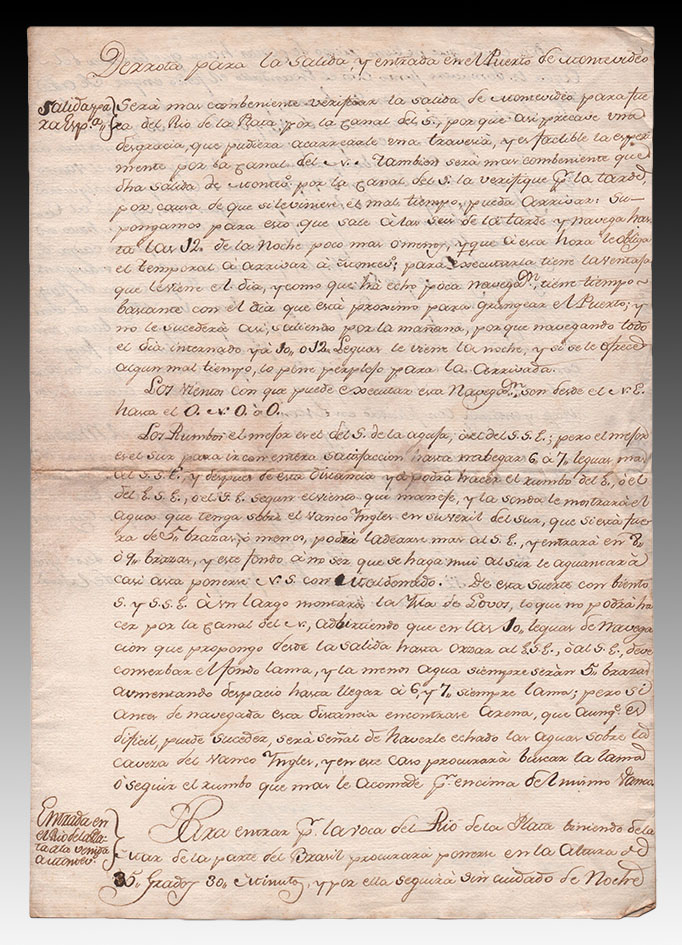 Derrota para la Salida, y entrada en el Puerto de Montevideo
Salida pa
ra Espª.
Será mas combeniente verificar la salida de Montevideo para fue
ra del Rio de la Plata por la Canal del S., por que asi precave una
desgracia, que pudiera acarrearle una travesia, y es factible la esperi
mente por la Canal del N. Tambien será mas combeniente que
dha salida de Montevº. por la Canal del S. la verifique pr. la tarde
por causa de que si le viniere el mal tiempo, pueda Arrivar: Su-
pongamos para esto que sale à las seis de la tarde y navega has
ta las 12. de la Noche poco mas ò menos, y que à esta hora le obliga
el temporal à arrivar à Montevº; para executarla tiene la ventaja
que le viene el dia, y como que ha echo poca navegon., tiene tiempo
bastante con el dia que está proximo para grangear el Puerto; y
no le sucederá asi, saliendo por la mañana, porque navegando todo
el dia internado yà 10,, ò 12,, Leguas le viene la noche, y si se le ofrece
algun mal tiempo, lo pone perplejo para la Arrivada.
Los Vientos con que puede executar esta Navegon. son desde el N.E.
hasta el O.N.O. ò O.
Los Rumbos el mejor es el del S. de la aguja, ò el del S.S.E.; pero el mejor
es el sur para ir con entera satisfacion hasta nabegar 6 à 7,, leguas mas
al S.S.E., y despues de esta distancia ya podrá hacer el rumbo del E., ò el
del E.S.E., ò el S.E. segun el viento que maneje, y la sonda le mostrará el
agua que tenga sobre el Vanco Yngles en su veril del Sur, que si está fue
ra de 5,, brazas, ò menos, podrá ladearse mas al S.E., y entrará en 8,,
ò 9,, brazas, y este fondo à no ser que se haga mui al sur le aguantará
casi asta ponerse N.S. con Maldonado. De esta suerte con biento
S. y S.S.E. à un largo montará la Ysla de Lovos, lo que no podrá ha
cer por la Canal del N., adbirtiendo que en las 10,, leguas de Navega
cion que propongo desde la salida hasta orzar al E.S.E., ò al S.E., debe
conserbar el fondo lama, y la menos agua siempre serán 5,, brazas
aumentando despacio hasta llegar à 6, y 7,, siempre lama; pero si
antes de navegada esta distancia encontrase Arena, que aunqe. es
dificil, puede suceder, será señal de haverle echado las aguas sobre la
cavera del Vanco Yngles, y en este caso procurará buscar la lama
ò seguir el rumbo que mas le acomode pr. encima del mismo Vanco.
Entrada en
el Rio de la Pla
ta a la venida
a Montevº.
Para entrar pr. la voca del Rio de la Plata biniendo de la
Mar de la parte del Brasil procurará ponerse en la Altura de
35,, Grados 30,, Minutos, y por ella seguirá sin cuidado de Noche